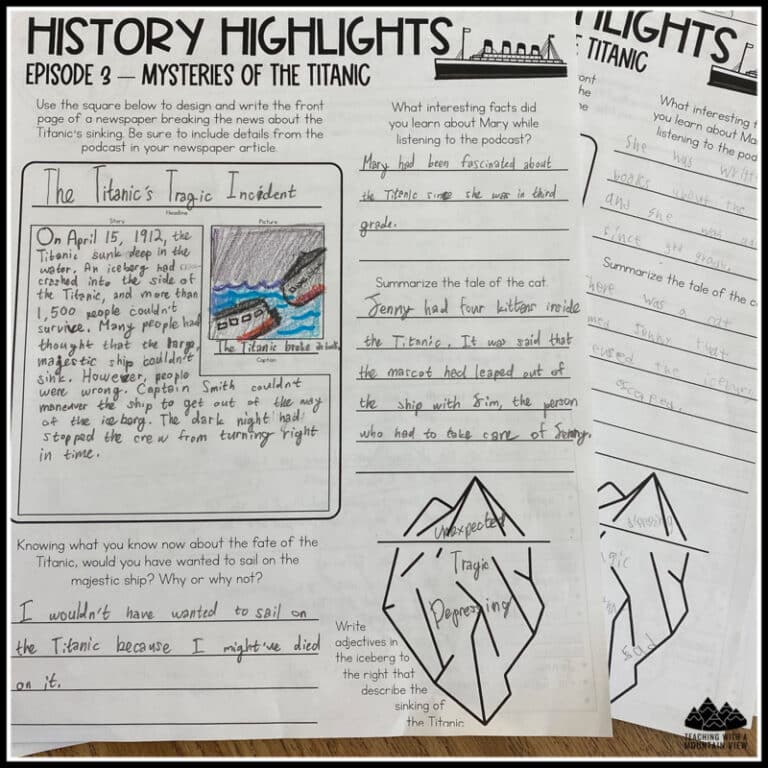 HISTORY HIGHLIGHTS
EPISODE 3 – MYSTERIES OF THE TITANIC
Use the square below to design and write the front
page of a newspaper breaking the news about the
Titanic's sinking. Be sure to include details from the
podcast in your newspaper article.
The Titanic's Tragic Incident
Headline
Story
On April 15, 1912, the
Titanic sunk deep in the
water. An iceberg had
crashed into the side of
the Titanic, and more than
1,500 people couldn't
survive. Many people had
thought that the large,
majestic ship couldn't
sink. However, people
were wrong. Captain Smith couldn't
maneuver the ship to get out of the way
of the iceberg. The dark night had
stopped the crew from turning right
in time.
Picture
The Titanic broke in half.
Caption
Knowing what you know now about the fate of the
Titanic, would you have wanted to sail on the
majestic ship? Why or why not?
I wouldn't have wanted to sail on
the Titanic because I might've died
on it.
What interesting facts did
you learn about Mary while
listening to the podcast?
Mary had been fascinated about
the Titanic since she was in third
grade.
Summarize the tale of the cat.
Jenny had four kittens inside
the Titanic. It was said that
the mascot had leaped out of
the ship with Jim, the person
who had to take care of Jenny.
Unexpected
Tragic
Depressing
Write
adjectives in
the iceberg to
the right that
describe the
sinking of
the Titanic.
HLIGHTS
E TITANIC
ront
the
the
What interesting
you learn about Mary
listening to the pod
She has writt
books about the
and she
since
grade.
Summarize the tale of the c
here was a cat
med Jenny that
the iceburg
escaped.
gic
Sad
TEACHING WITH A
MOUNTAIN VIEW